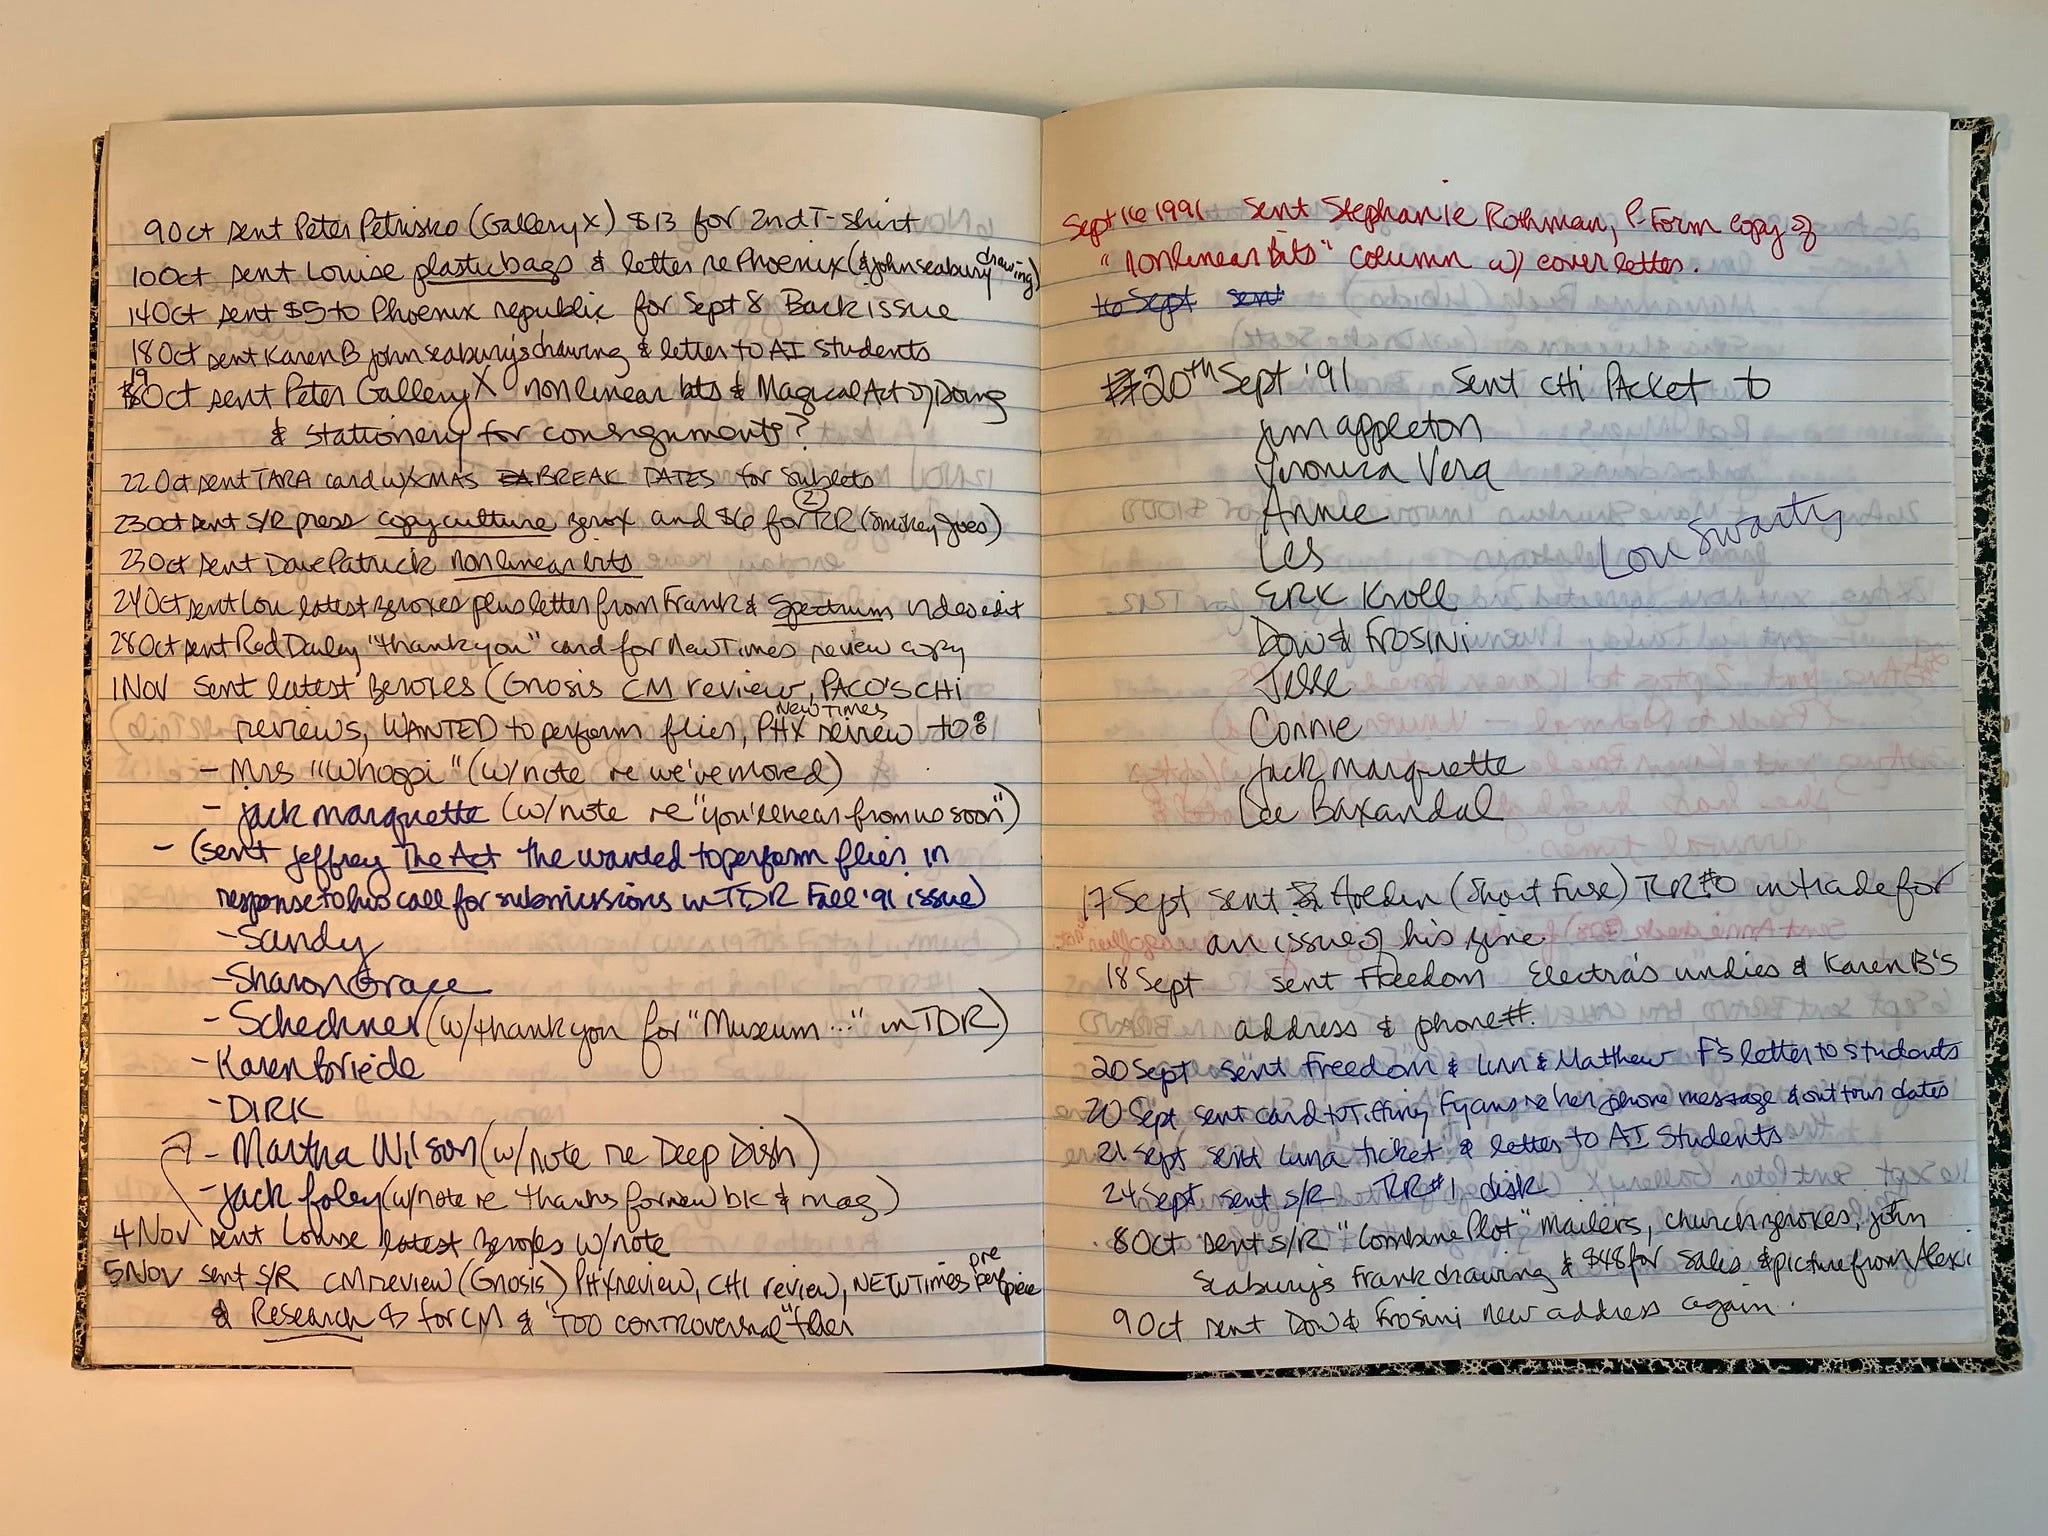 9 Oct sent Peter Petrisko (Gallery X) $13 for 2nd T-shirt
10 Oct sent Louise plastic bags & letter re Phoenix (& john seabury drawing)
14 Oct sent $5 to Phoenix republic for Sept 8 Back issue
18 Oct sent Karen B john seabury's drawing & letter to AI students
19 Oct sent Peter Gallery X nonlinear bits & Magical Act of Doing
& stationery for consignments?
22 Oct sent TARA card w/ XMAS BREAK DATES for sublets
23 Oct sent S/R press copy culture zerox and $6 for 2 RR (Smokey Joes)
23 Oct sent Dave Patrick nonlinear bits
24 Oct sent Lou latest zeroxes plus letter from Frank & Spectrum video edit
28 Oct sent Rod Dailey "thank you" card for New Times review copy
1 Nov sent latest zeroxes (Gnosis CM review, PACO'S CHI
reviews, WANTED to perform fliers, PHX New Times review to:
- Mrs "Whoopi" (w/note re we've moved)
- jack marquette (w/note re "you'll hear from us soon")
- (sent jeffrey The Act the wanted to perform fliers in
response to his call for submissions in TDR Fall '91 issue)
- Sandy
- Sharon Grace
- Schechner (w/thank you for "Museum..." in TDR)
- Karen Briede
- DIRK
- Martha Wilson (w/note re Deep Dish)
- jack foley (w/note re thanks for new bk & mag)
4 Nov sent Louise latest zeroxes w/note
5 Nov sent S/R CM review (Gnosis) PHX review, CHI review, NEW Times pre perf piece
& Research $ for CM & "TOO CONTROVERSIAL" flier
Sept 16 1991 Sent Stephanie Rothman, P-Form copy of
"nonlinear Bits" column w/ cover letter.
to Sept sent
20th Sept '91 Sent CHI PACKET to
jim appleton
Veronica Vera
Annie
Les
Lou Swartz
ERIK Kroll
Dow & FROSINI
Jesse
Connie
jack marquette
Lee Baxandal
17 Sept sent Holden (Short Fuse) TCR #0 in trade for
an issue of his zine
18 Sept sent Freedom Electra's undies & Karen B's
address & phone #.
20 Sept sent Freedom & Linn & Matthew F's letter to students
20 Sept sent card to Tiffiny Fyans re her phone message & our tour dates
21 Sept sent Luna ticket & letter to AI Students
24 Sept sent S/R TCR #1 disk
8 Oct sent S/R "Combine Plot" mailers, church zeroxes, john
Seabury's Frank drawing & $48 for sales & picture from Alexi
9 Oct sent Dow & Frosini new address again.